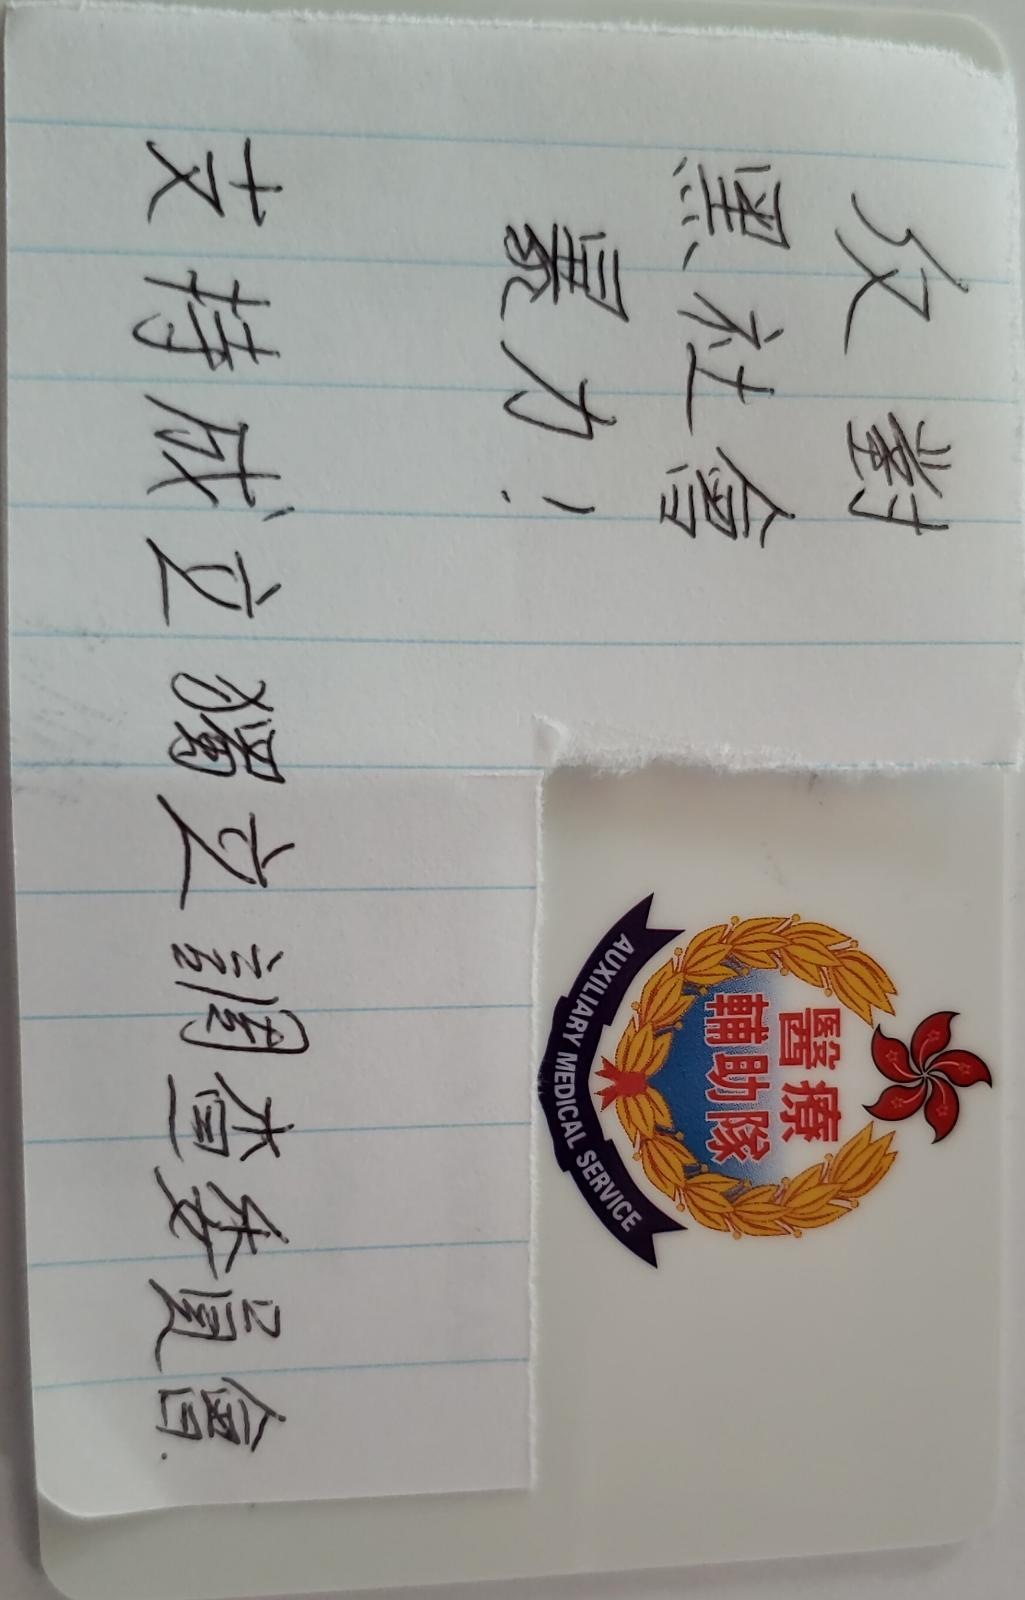 反對
黑社會
暴力!
支持成立獨立調查委員會.
醫療
輔助隊
AUXILIARY MEDICAL SERVICE